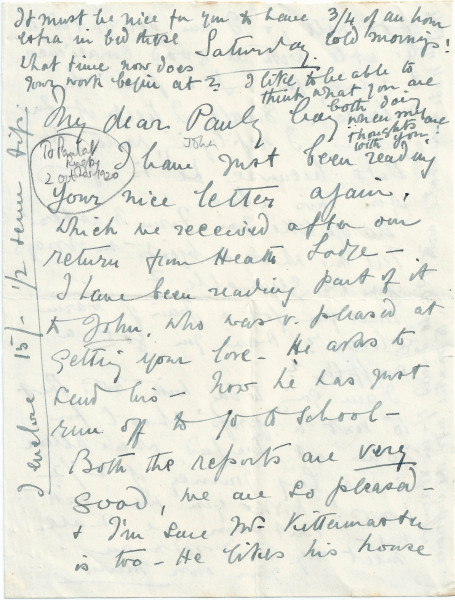 It must be nice for you to have 3/4 of an hour
extra in bed these cold mornings!
Saturday.
What time now does
your work begin at? I like to be able to
think what you are
both doing
when my
thoughts are
with you!
My dear Pauly
John
To Paul at
Rugby
2 Oct 1920
I have just been reading
your nice letter again,
which we received after our
return from Heath Lodge –
I have been reading part of it
to John, who was v. pleased at
getting your love – He asks to
send his – now he has just
run off to go to school –
Both the reports are very
good, we are so pleased –
& I'm sure Mr Kittermaster
is too – He likes his house
I enclose 15/- 1/2 term tips.